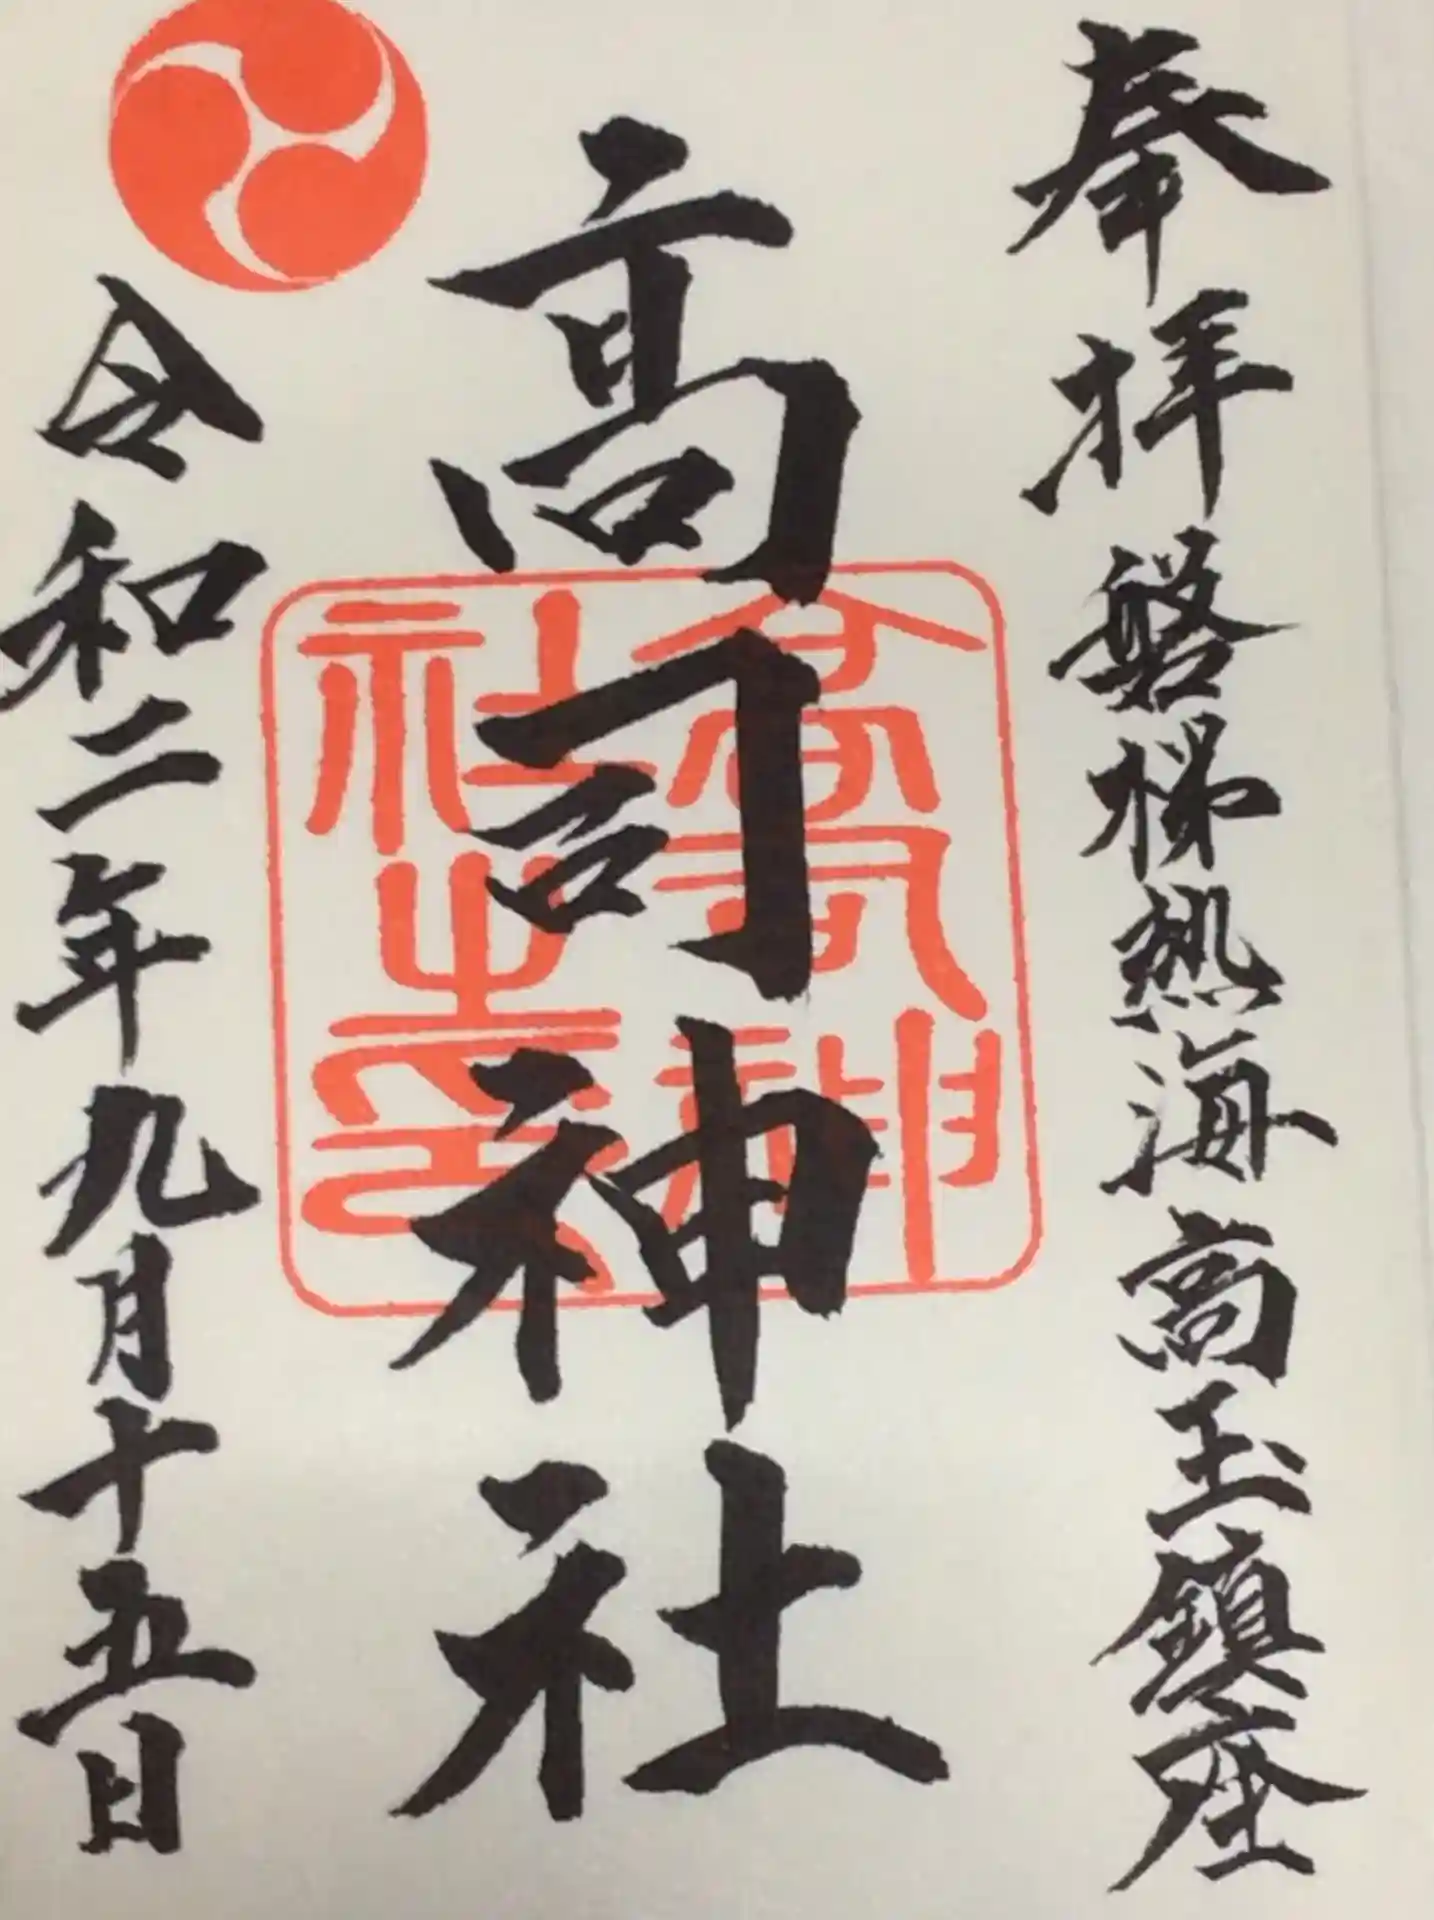 奉拝 磐梯熱海高玉鎮座
高司神社
高司神社之印
令和二年九月十五日